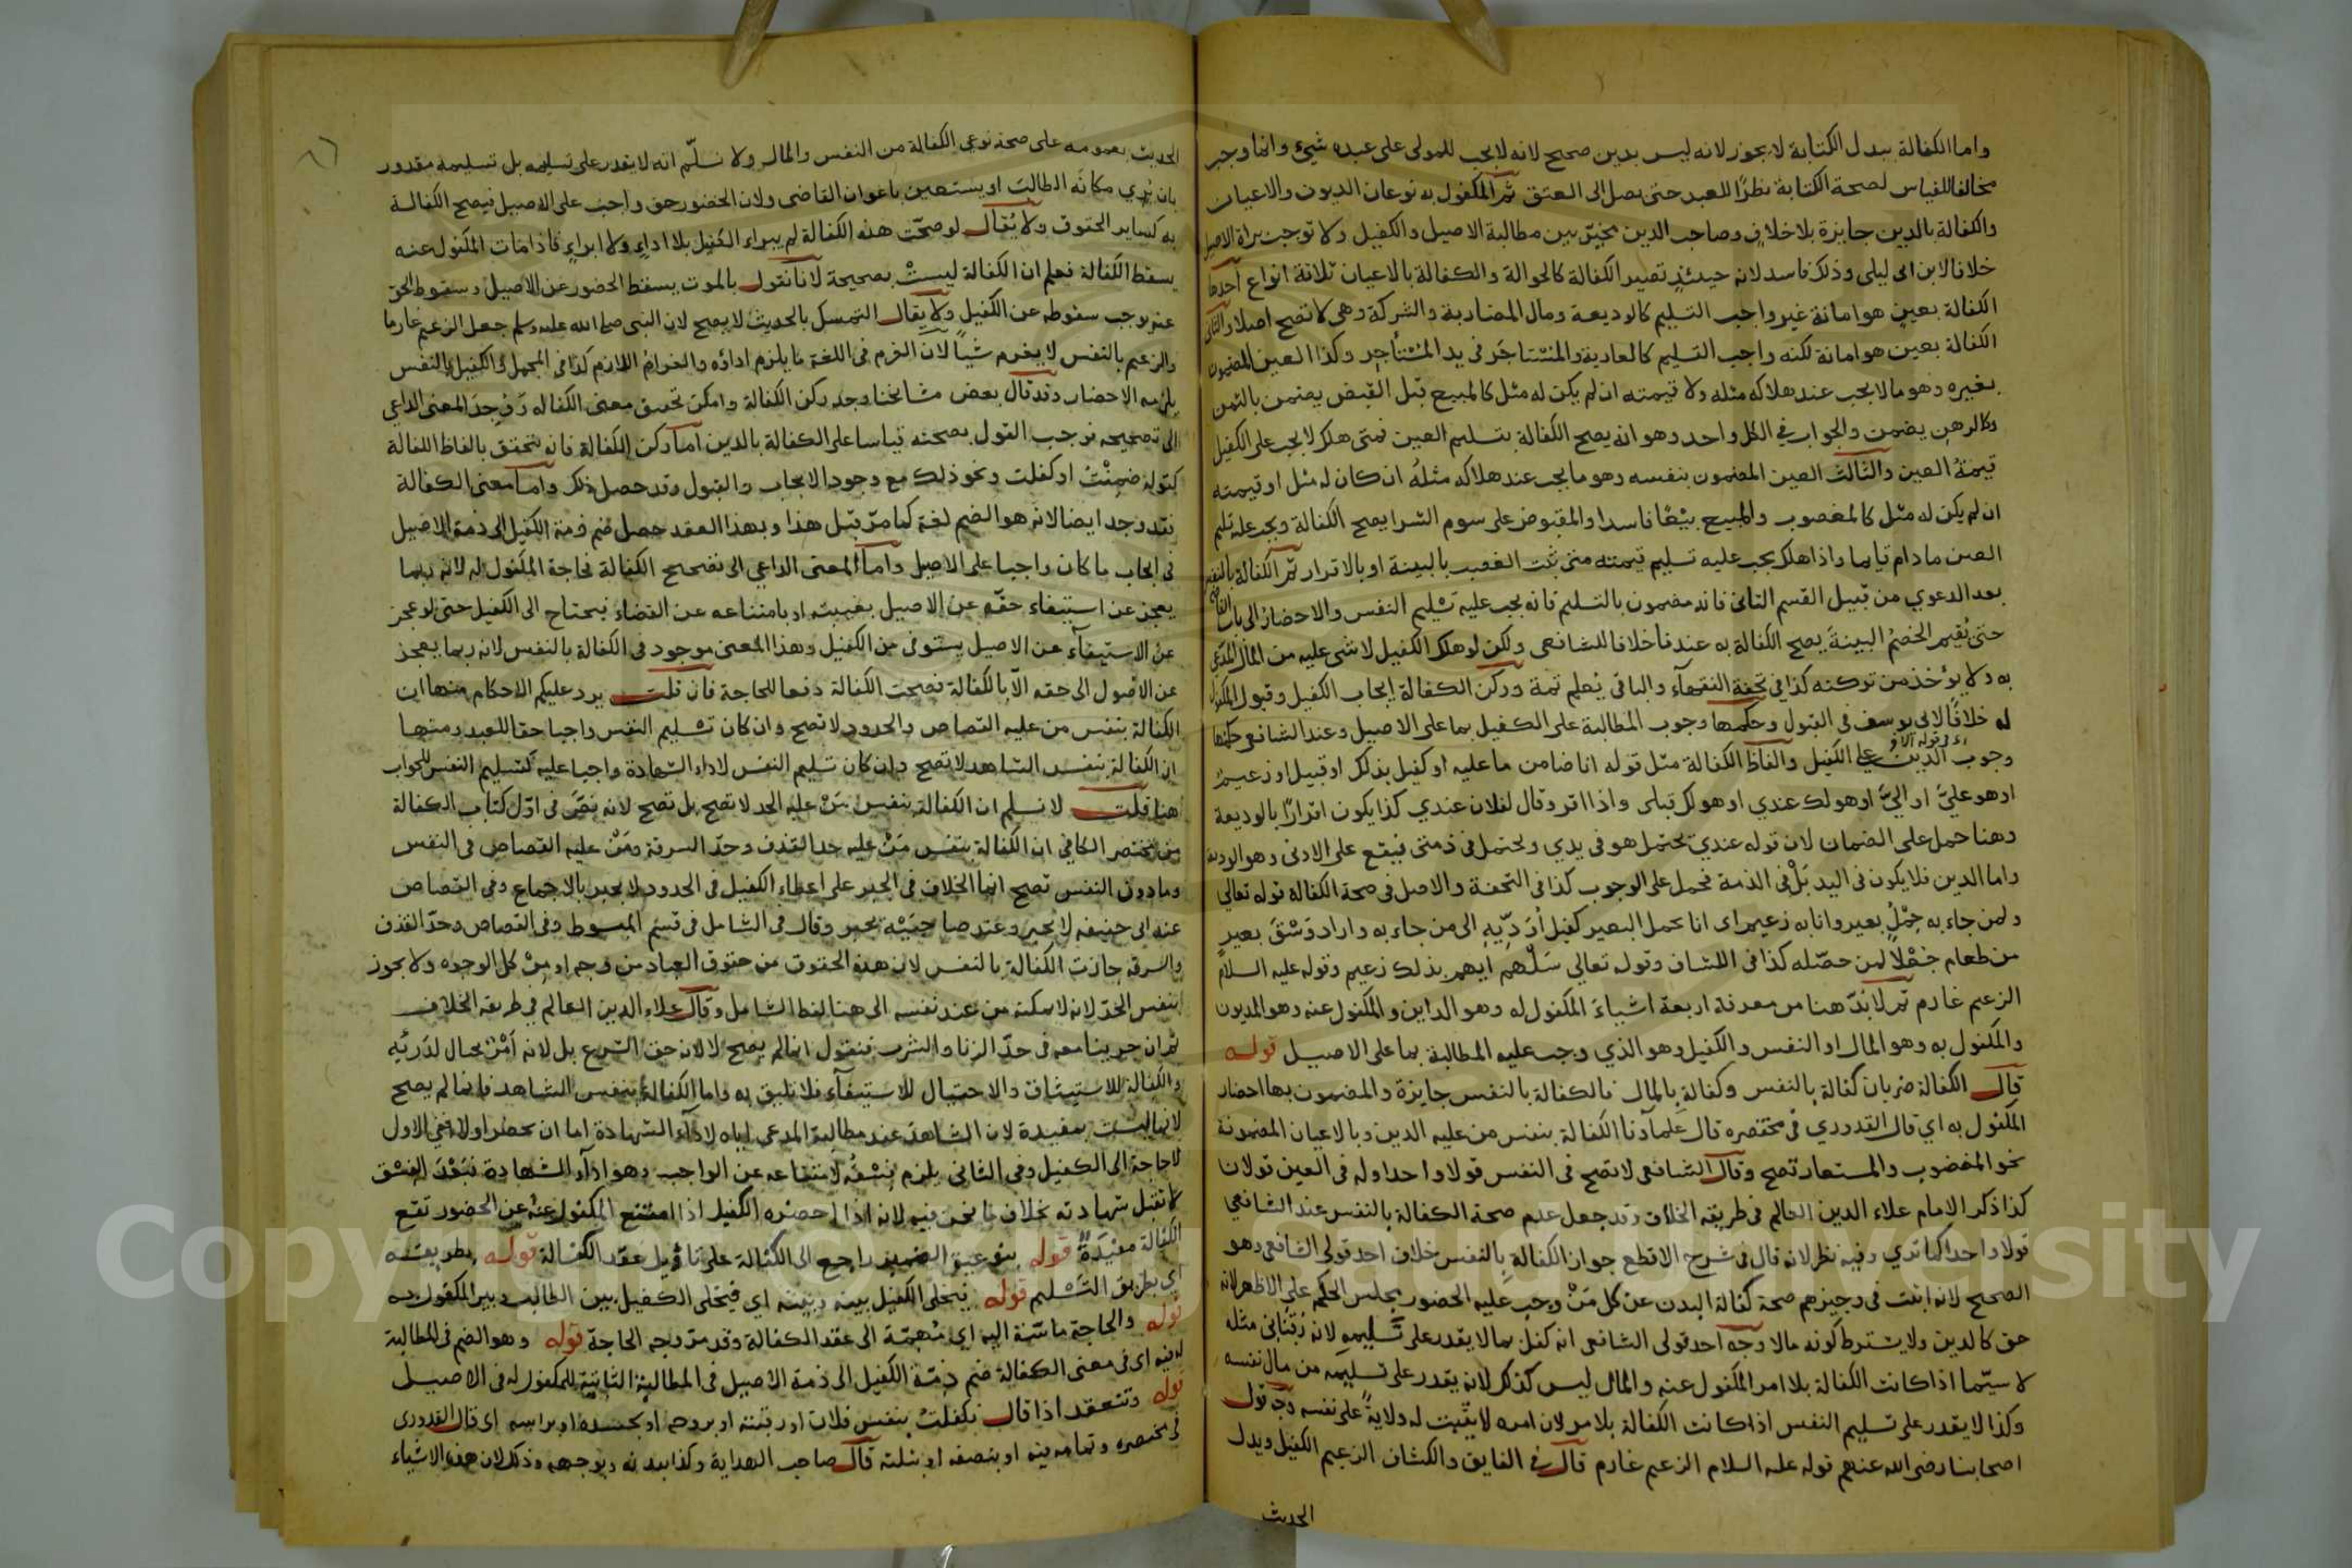 واما الكفالة ببدل الكتابة لا يجوز لانه ليس بدين صحيح لانه لا يجب للمولى على عبده شيء وانما وجب
مخالفا للقياس لصحة الكتابة نظرًا للعبد حتى يصل الى العتق ثم المكفول به نوعان الديون والاعيان
والكفالة بالدين جايزة بلا خلاف وصاحب الدين مخيّر بين مطالبة الاصيل والكفيل ولا توجب براة الاصيل
خلافا لابن ابى ليلى وذلك فاسد لانه حينئذٍ تصير الكفالة كالحوالة والكفالة بالاعيان ثلاثة انواع احدها
الكفالة بعين هو امانة غير واجب التسليم كالوديعة ومال المضاربة والشركة وهى لا تصح اصلا والثانى
الكفالة بعين هو امانة لكنه واجب التسليم كالعارية والمستاجَر فى يد المستأجِر وكذا العين المضمون
بغيره وهو ما لا يجب عند هلاكه مثله ولا قيمته ان لم يكن له مثل كالمبيع قبل القبض يضمن بالثمن
وكالرهن يضمن والجواب في الكل واحد وهو انه يصح الكفالة بتسليم العين فمتى هلك لا يجب على الكفيل
قيمةُ العين والثالث العين المضمون بنفسه وهو ما يجب عند هلاكه مثلهُ ان كان له مثل او قيمته
ان لم يكن له مثل كالمغصوب والمبيع بيعًا فاسدا والمقبوض على سوم الشرا يصح الكفالة ويجب عليه تسليم
العين ما دام قايما واذا هلك يجب عليه تسليم قيمته متى ثبت الغصب بالبينة او بالاقرار ثم الكفالة بالنفس
بعد الدعوي من قبيل القسم الثانى فانه مضمون بالتسليم فانه يجب عليه تسليم النفس والاحضار الى باب القاضى
حتى يُقيم الخصمُ البينةَ يصح الكفالة به عندنا خلافا للشافعى ولكن لو هلك الكفيل لا شى عليه من المال المدّعى
به ولا يؤخذ من تركته كذا فى تحفة الفقهآء والباقى يُعلم ثمة وركن الكفالة ايجاب الكفيل وقبول المكفول
له خلافًا لابى يوسف فى القبول وحكمها وجوب المطالبة على الكفيل بما على الاصيل وعند الشافعى حكمها
وجوب الدين على الكفيل والفاظ الكفالة مثل قوله انا ضامن ما عليه او كفيل بذلك او قبيل او زعيم
او هو عليّ او اليّ او هو لك عندي او هو لك قبلى واذا اقر وقال لفلان عندي كذا يكون اقرارًا بالوديعة
وهنا حمل على الضمان لان قوله عندي يحتمل هو فى يدي ويحتمل فى ذمتى فيقع على الادنى وهو الوديعة
واما الدين فلا يكون فى اليد بَلْ فى الذمة فحمل على الوجوب كذا فى التحفة والاصل فى صحة الكفالة قوله تعالي
ولمن جاء به حِمْلُ بعير وانا به زعيم اى انا بحمل البعير كفيل أُرَدِّيه الى من جاء به واراد وَسْقَ بعير
من طعام جُعْلًا لمن حصّله كذا فى الكشاف وقوله تعالي سَلْهم ايهم بذلك زعيم وقوله عليه السلام
الزعيم غارم ثم لا بدّ هنا من معرفة اربعة اشياءَ المكفول له وهو الداين والمكفول عنه وهو المديون
والمكفول به وهو المال او النفس والكفيل وهو الذي وجب عليه المطالبة بما على الاصيل قوله
قال الكفالة ضربان كفالة بالنفس وكفالة بالمال فالكفالة بالنفس جايزة والمضمون بها احضار
المكفول به اي قال القدوري فى مختصره قال علمآؤنا الكفالة بنفس من عليه الدين وبالاعيان المضمونة
نحو المغصوب والمستعار تصح وقال الشافعى لا تصح فى النفس قولا واحدا وله فى العين قولان
كذا ذكر الامام علاء الدين العالم فى طريقة الخلاف وقد جعل عدم صحة الكفالة بالنفس عند الشافعي
قولا واحدا كما ترى وفيه نظر لانه قال فى شرح الاقطع جواز الكفالة بالنفس خلاف احد قولى الشافعى وهو
الصحيح لانه اثبت فى وجيزهم صحة كفالة البدن عن كل مَنْ وجب عليه الحضور بمجلس الحكم على الاظهر لانه
حق كالدين ولا يشترط كونه مالا وجه احد قولى الشافعى انه كفل بما لا يقدر على تسليمه لانه رقبَانى مثله
لا سيّما اذا كانت الكفالة بلا امر المكفول عنه والمال ليس كذلك لانه يقدر على تسليمه من مال نفسه
وكذا لا يقدر على تسليم النفس اذا كانت الكفالة بلا امر لان امره لا يثبت له ولايةً على نفسه وجه قول
اصحابنا رضى الله عنهم قوله عليه السلام الزعيم غارم قال فى الفايق والكشاف الزعيم الكفيل ويدل
الحديث
الحديث بعمومه على صحة نوعى الكفالة من النفس والمال ولا نسلّم انه لا يقدر على تسليمه بل تسليمه مقدور
بان يُري مكانَه الطالبَ او يستعين باعوان القاضى ولان الحضور حق واجب على الاصيل فيصح الكفالة
به كساير الحقوق ولا يُقال لو صحّت هذه الكفالة لم يبراء الكفيل بلا اداءٍ ولا ابراءٍ فاذا مات المكفول عنه
يسقط الكفالة فعلم ان الكفالة ليستْ بصحيحة لانا نقول بالموت يسقط الحضور عن الاصيل وسقوط الحق
عنه يوجب سقوطه عن الكفيل ولا يقال التمسك بالحديث لا يصح لان النبى صلى الله عليه وسلم جعل الزعيم غارما
والزعيم بالنفس لا يغرم شيأً لان الغرم فى اللغة ما يلزم اداؤه والغرام اللازم كذا فى المجمل والكفيل بالنفس
يلزمه الاحضار وقد قال بعض مشايخنا وجد ركن الكفالة وامكن تحقيق معنى الكفالة ووُجدَ المعنى الداعي
الى تصحيحه فوجب القول بصحته قياسا على الكفالة بالدين اما ركن الكفالة فانه يتحقق بالفاظ الكفالة
كقوله ضمِنْتُ او كفلت ونحو ذلك مع وجود الايجاب والقبول وقد حصل ذلك واما معنى الكفالة
فقد وجد ايضا لانه هو الضم لغة كما مرّ قبل هذا وبهذا العقد حصل ضم ذمة الكفيل الى ذمة الاصيل
فى ايجاب ما كان واجبا على الاصيل واما المعنى الداعي الى تصحيح الكفالة فحاجة المكفول له لانه ربما
يعجز عن استيفاء حقّه عن الاصيل بغيبته او بامتناعه عن القضاء فيحتاج الى الكفيل حتى لو عجز
عن الاستيفآء عن الاصيل يستوفى من الكفيل وهذا المعنى موجود فى الكفالة بالنفس لانه ربما يعجز
عن الوصول الى حقه الّا بالكفالة فصحت الكفالة دفعا للحاجة فان قلت يرد عليكم الاحكام منها ان
الكفالة بنفس من عليه القصاص والحدود لا تصح وان كان تسليم النفس واجبا حقا للعبد ومنها
ان الكفالة بنفس الشاهد لا تصح وان كان تسليم النفس لاداء الشهادة واجبا عليه كتسليم النفس للجواب
هنا قلت لا نسلم ان الكفالة بنفس مَنْ عليه الحد لا تصح بل تصح لانه نصّ فى اوّل كتاب الكفالة
من مختصر الكافي ان الكفالة بنفس مَنْ عليه حد القذف وحدّ السرقة ومَنْ عليه القصاص فى النفس
وما دون النفس تصح انما الخلاف فى الجبر على اعطاء الكفيل فى الحدود لا يجبر بالاجماع وفى القصاص
عند ابى حنيفه لا يجبر وعند صاحبَيْه يجبر وقال فى الشامل فى قسم المبسوط وفى القصاص وحدّ القذف
والسرقه جازت الكفالة بالنفس لان هذه الحقوق من حقوق العباد من وجه او مِنْ كل الوجوه ولا يجوز
بنفس الحدّ لانه لا يمكنه من عند نفسه الى هنا لفظ الشامل وقال علاء الدين العالم في طريقة الخلاف
ثم ان جرينا معه فى حدّ الزنا والشرب فنقول انما لم يصح لا لانه حق الشرع بل لانه اُمْرَ بحال لدَرئه
والكفالة للاستيثاق والاحتيال للاستيفآء فلا تليق به واما الكفالة بنفس الشاهد فانما لم يصح
لانها ليست بمفيدة لان الشاهد عند مطالبة المدعى اياه لادآء الشهادة اما ان يحضر اولا ففي الاول
لا حاجة الى الكفيل وفى الثانى يلزم فِسْقُه لامتناعه عن الواجب وهو ادآء الشهادة فبَعْدَ الفسْق
لا تقبل شهادته بخلاف ما نحن فيه لانه اذا احضره الكفيل اذا امتنع المكفول عنه عن الحضور تقع
الكفالة مفيْدَةً قوله بنوعيه الضمير راجع الى الكفالة على تأويل عقد الكفالة قوله بطريقه
اي بطريق التسليم قوله يخلى الكفيل بينه وبينه اي فيخلى الكفيل بين الطالب وبين المكفول به
قوله والحاجة ماسّة اليه اي مُهمّة الى عقد الكفالة وقد مرّ وجه الحاجة قوله وهو الضم فى المطالبة
له فيه اى فى معنى الكفالة ضم ذمّة الكفيل الى ذمة الاصيل فى المطالبة الثابتة للمكفول له فى الاصيل
قوله وتنعقد اذا قال تكفلتُ بنفس فلان او رقبته او بروحه او بجسده او براسه اى قال القدورى
فى مختصره وتمامه فيه او بنصفه او بثلثه قال صاحب الهداية وكذا ببدنه وبوجهه وذلك لان هذه الاشياء